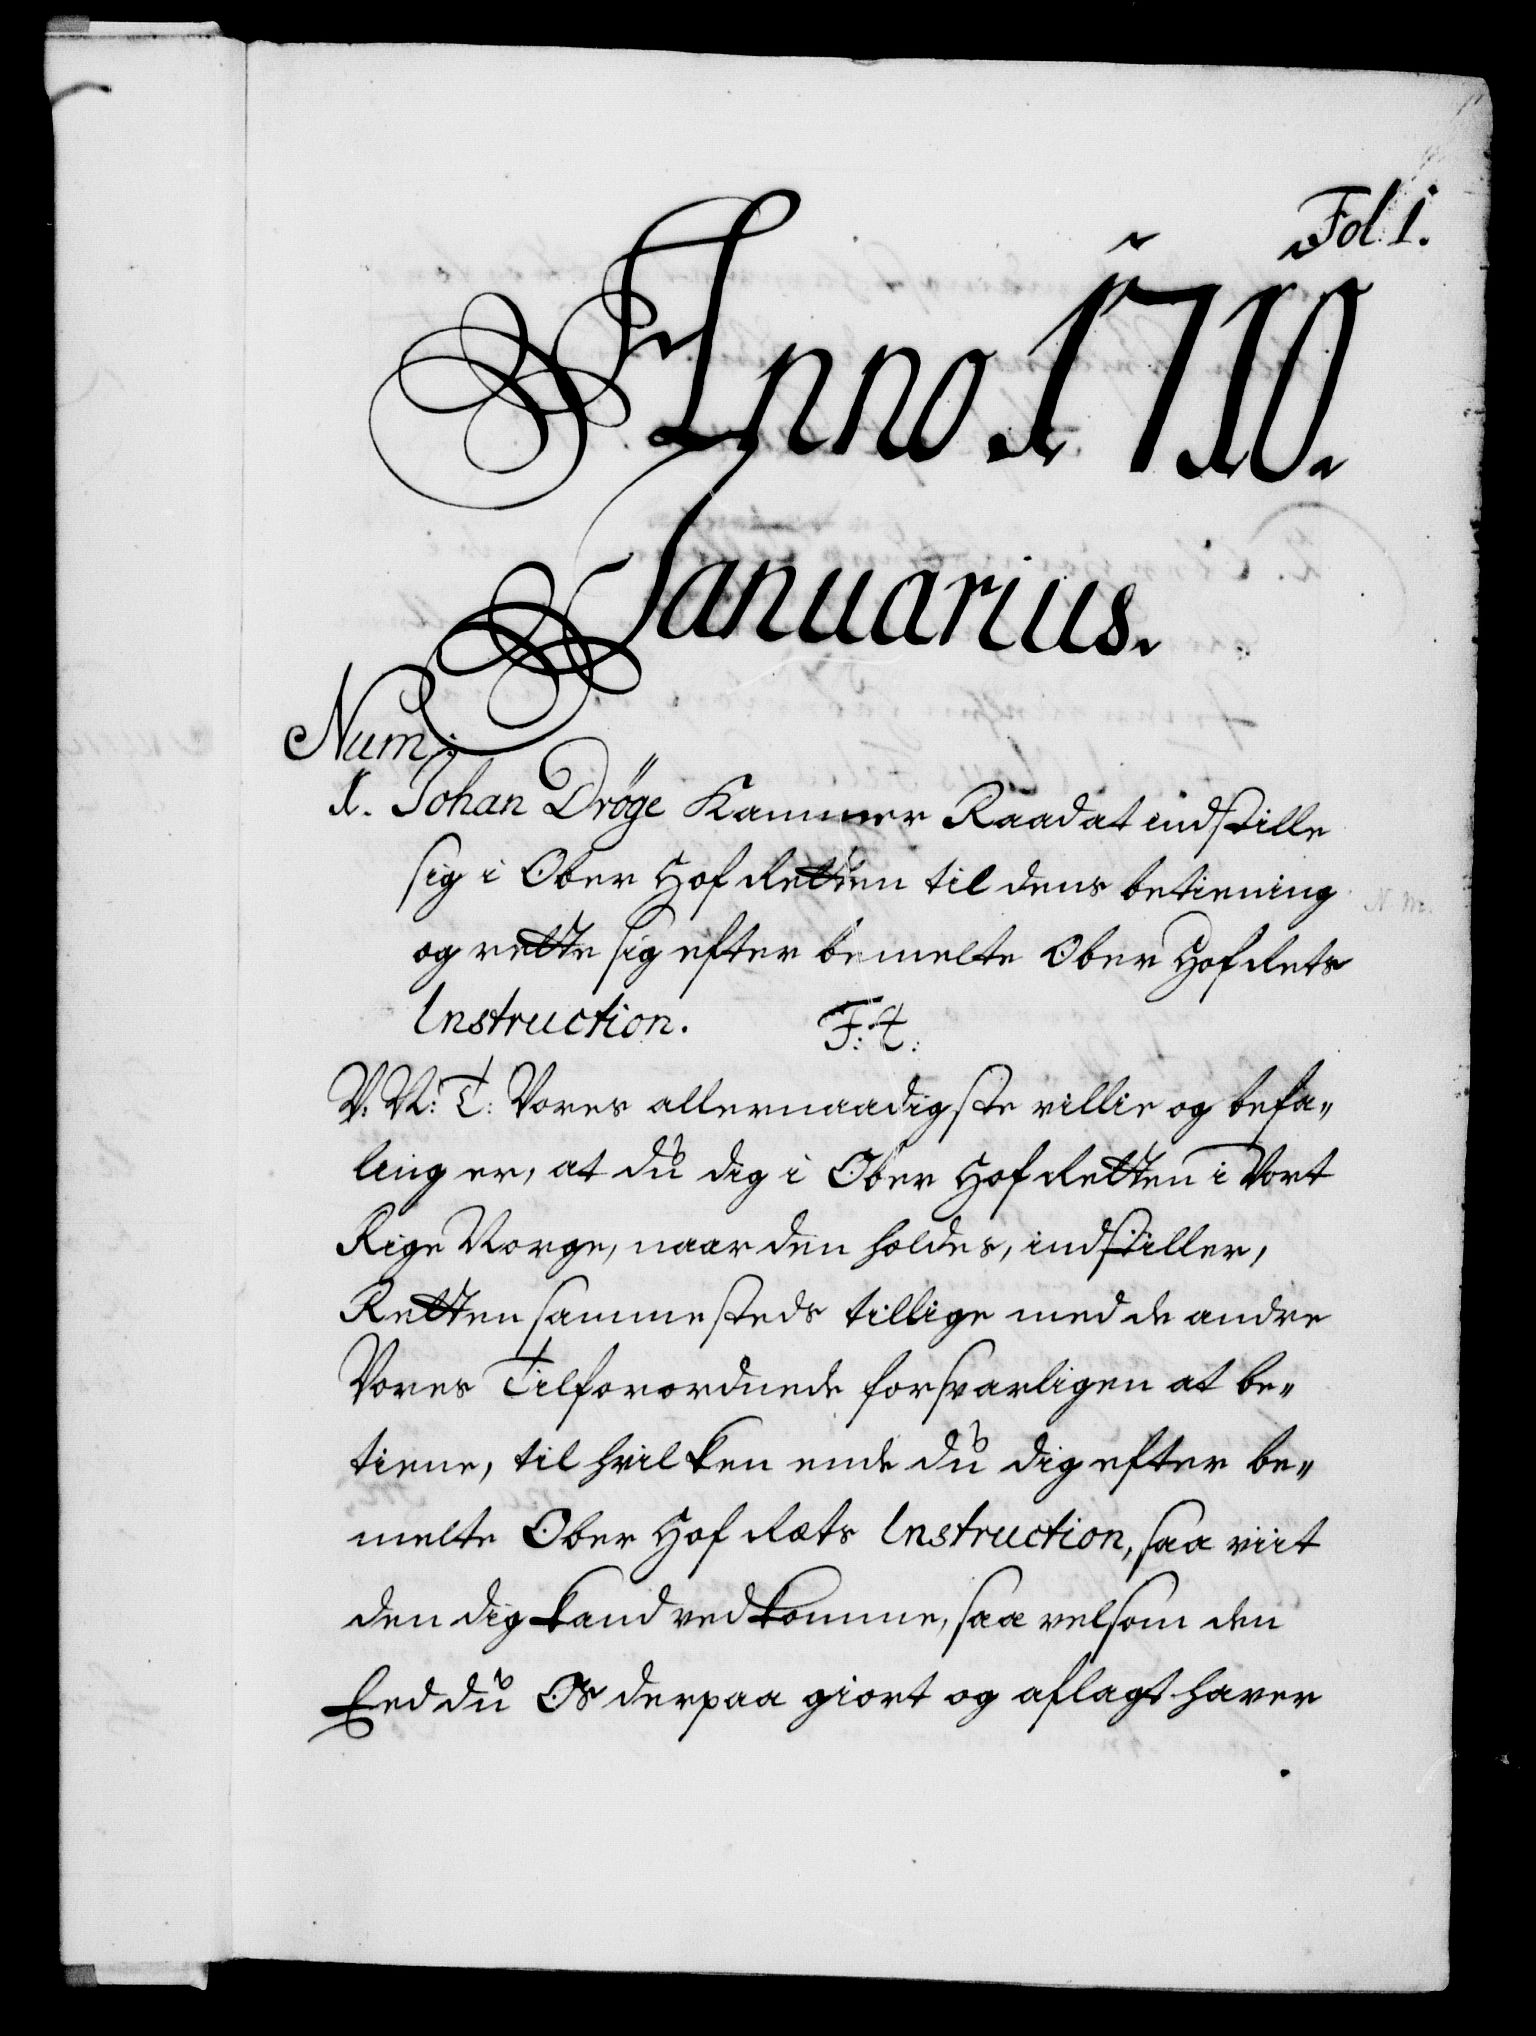 Fol. 1.
Anno 1710.
Januarius.
Num:
1. Johan Dröge Kammer Raad at indstille
sig i Ober Hof Retten til dens betiening
og rette sig efter bemelte Ober Hof Rets
Instruction. F: 4:
V. N: T: Vores allernaadigste villie og befa„
ling er, at du dig i Ober Hof Retten i Vort
Rige Norge, naar den holdes, indstiller,
Retten sammesteds tillige med de andre
Vores Tilforordnede forsvarligen at be„
tiene, til hvilken ende du dig efter be„
melte Ober Hof Rets Instruction, saa viit
den dig kand vedkomme, saa velsom den
Eed du Os derpaa giort og aflagt haver